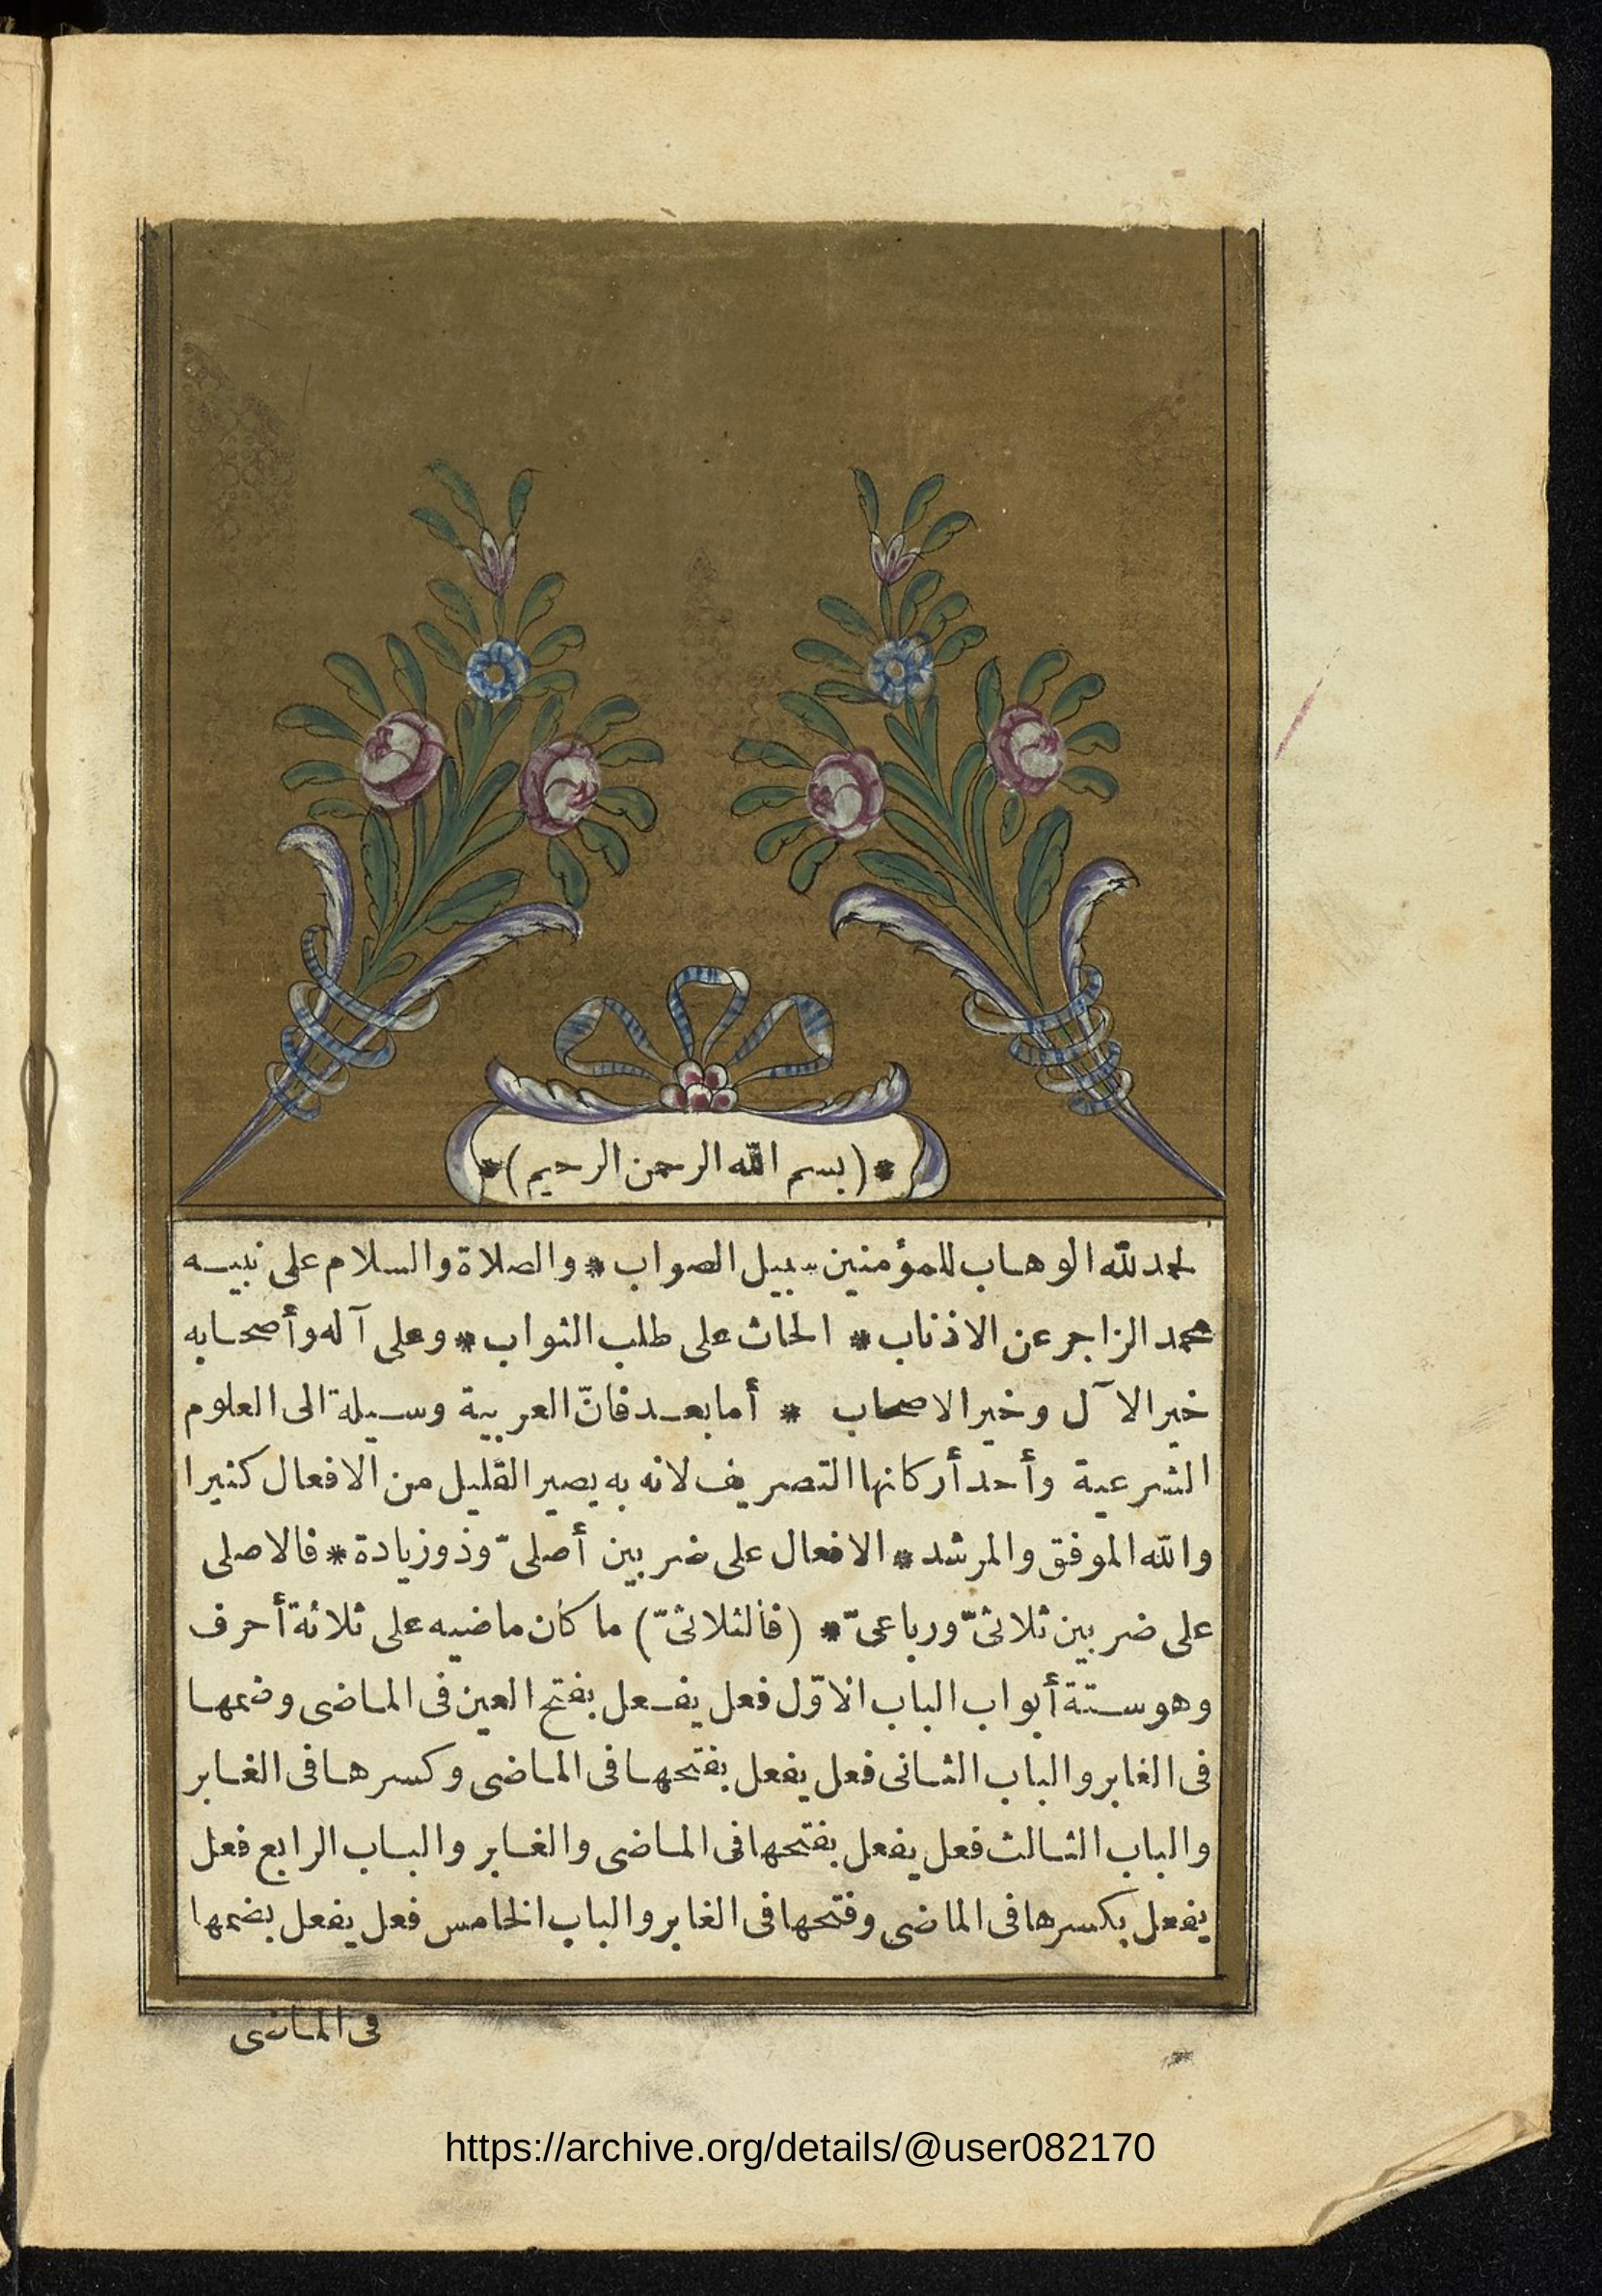 *(بسم الله الرحمن الرحيم)*
لحمد لله الوهاب للمؤمنين سبيل الصواب * والصلاة والسلام على نبيه
محمد الزاجر عن الاذناب * الحاث على طلب الثواب * وعلى آله وأصحابه
خير الآل وخير الاصحاب * أما بعد فانّ العربية وسيلة الى العلوم
الشرعية وأحد أركانها التصريف لانه به يصير القليل من الافعال كثيرا
والله الموفق والمرشد * الافعال على ضربين أصلىّ وذو زيادة * فالاصلى
على ضربين ثلاثىّ ورباعىّ * (فالثلاثىّ) ما كان ماضيه على ثلاثة أحرف
وهو ستة أبواب الباب الاوّل فعل يفعل بفتح العين فى الماضى وضمها
فى الغابر والباب الثانى فعل يفعل بفتحها فى الماضى وكسرها فى الغابر
والباب الثالث فعل يفعل بفتحها فى الماضى والغابر والباب الرابع فعل
يفعل بكسرها فى الماضى وفتحها فى الغابر والباب الخامس فعل يفعل بضمها
فى الماضى
https://archive.org/details/@user082170